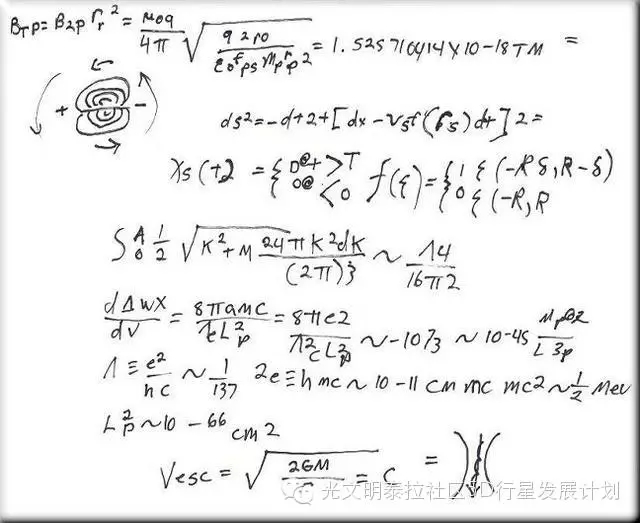 BTP = B2P rr² = μ0q/4π √(q2r0/ε0fps mprp2) = 1.525710414×10-18TM =
+ -
ds²=-d+2+[dx-vsf(rs)dt]2=
Xs(+2 = { D@+ >T 0@ <0 f(ξ)={ 1 ξ(-Rδ,R-δ) 0 ξ(-R,R
S A 0 1/2 √K²+M 24πK²dK/(2π)3 ~ Λ4/16π2
dΔwx/dv = 8πamc/ƛeL²p = 8πe2/Λ²cL²p ~-1073 ~10-45 Mpc2/L3p
Λ ≡ e²/hc ~ 1/137 2e≡hmc~10-11 cm mc mc2~1/2 Mev
L²p~10-66cm2
Vesc = √2GM = C =
光文明泰拉社区5D行星发展计划